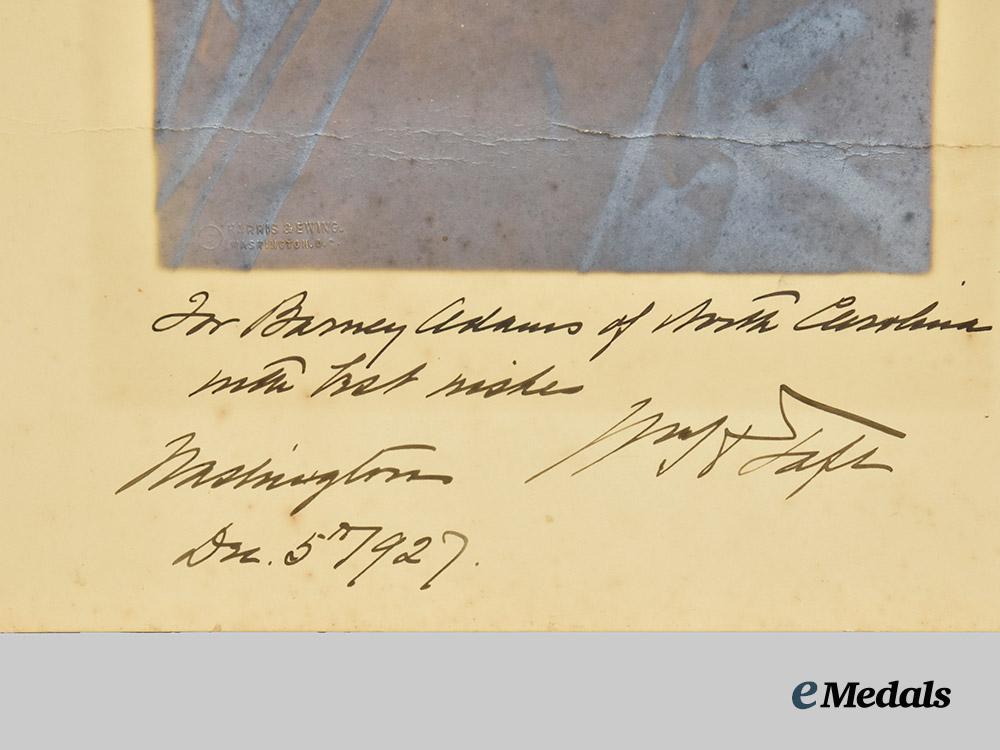 HARRIS & EWING.
WASHINGTON, D.C.
For Barney Adams of North Carolina
with best wishes
Wm H Taft
Washington
Dec. 5th 1927.
eMedals